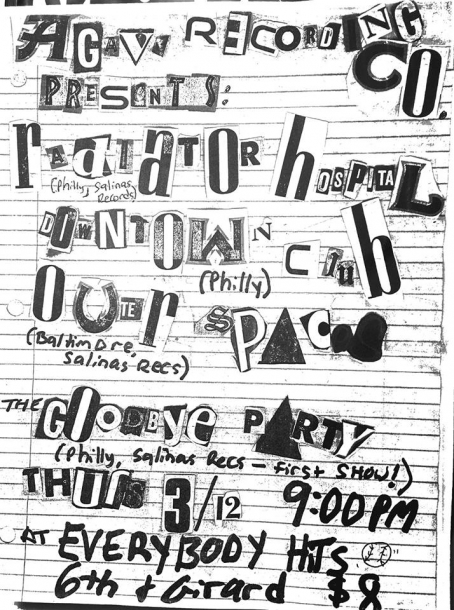 AGAVA RECORDING
CO.
PRESENTS:
radiator hospital
(Philly, Salinas
Records)
DOWNTOWN club
(Philly)
OUTER SPACE
(Baltimore,
Salinas Recs)
THE GOODBYE PARTY
(Philly, Salinas Recs - first SHOW!)
THURS 3/12 9:00 PM
AT EVERYBODY HITS
6th + Girard $8